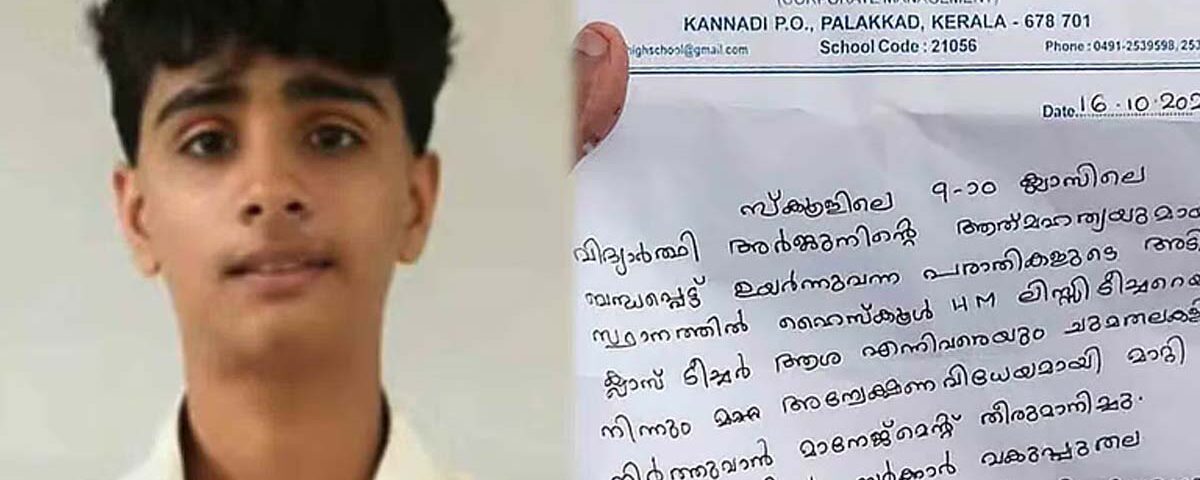 (CORPORATE MANAGEMENT)
KANNADI P.O., PALAKKAD, KERALA - 678 701
ighschool@gmail.com School Code : 21056 Phone : 0491-2539598, 253
Date 16.10.202
സ്കൂളിലെ 9-ാം ക്ലാസിലെ
വിദ്യാർത്ഥി അർജുനിന്റെ ആത്മഹത്യയുമാ
ബന്ധപ്പെട്ട് ഉയർന്നുവന്ന പരാതികളുടെ അടി
സ്ഥാനത്തിൽ ഹൈസ്കൂൾ HM ലിസ്സി ടീച്ചറെയ
ക്ലാസ് ടീച്ചർ ആശ എന്നിവരെയും ചുമതലകള
നിന്നും അന്വേഷണവിധേയമായി മാറ്റി
നിർത്തുവാൻ മാനേജ്മെന്റ് തീരുമാനിച്ചു.
വകുപ്പുതല